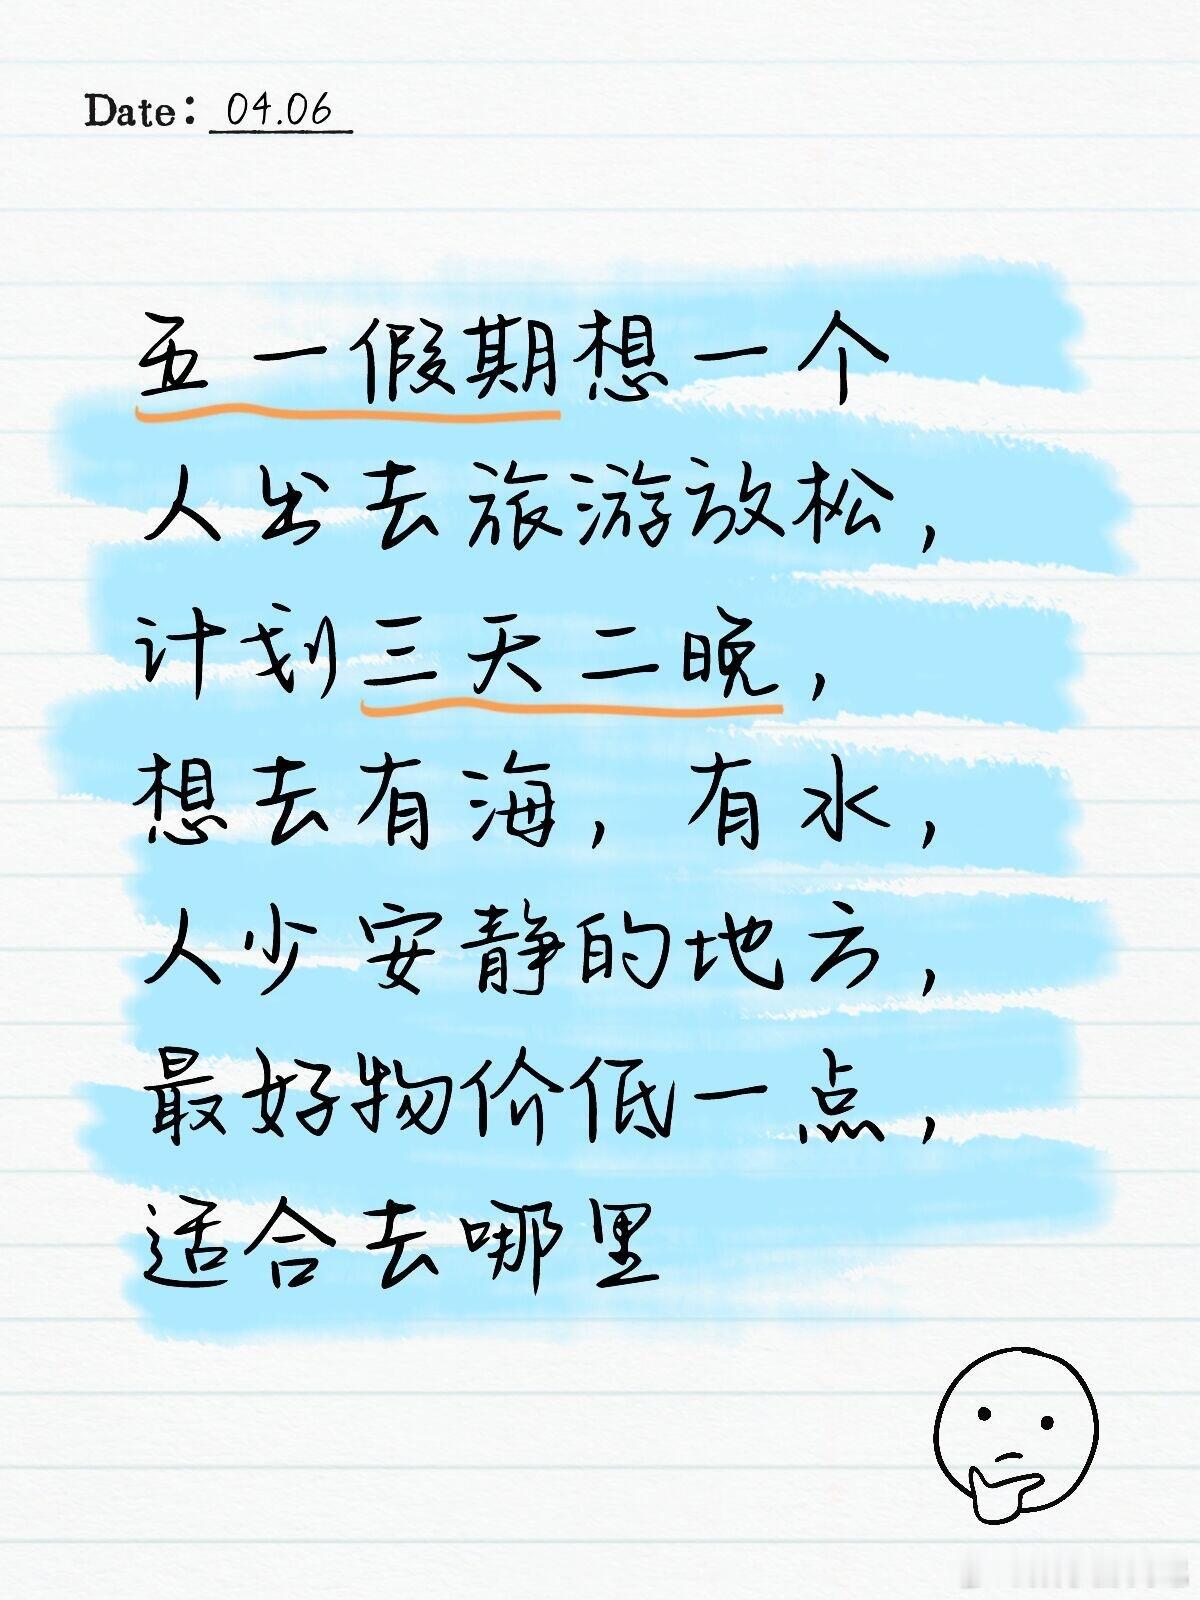 Date: 04.06
五一假期想一个
人出去旅游放松，
计划三天二晚，
想去有海，有水，
人少安静的地方，
最好物价低一点，
适合去哪里